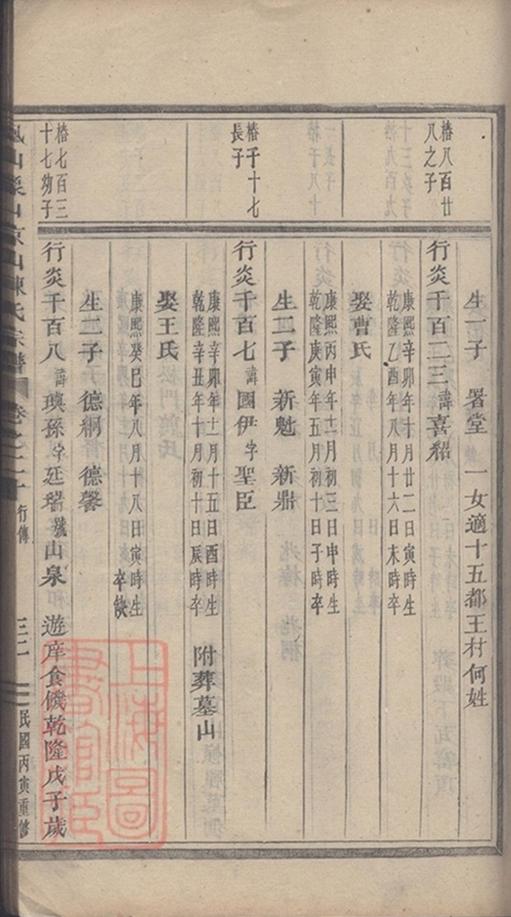 椿八百廿
八之子
生一子　署堂　一女適十五都王村何姓
行炎千百二三諱喜紹
康熙辛卯年十月廿二日寅時生
乾隆乙酉年八月十六日未時卒
娶曹氏
康熙丙申年十二月初三日申時生
乾隆庚寅年五月初十日子時卒
生二子　新魁　新鼎
椿千十七
長子
行炎千百七諱國伊字聖臣
康熙辛卯年十二月十五日酉時生
乾隆辛丑年十月初十日辰時卒　附葬墓山
娶王氏
康熙癸巳年八月十八日寅時生
卒缺
生二子　德綱　德馨
椿七百三
十七幼子
行炎千百八諱瑛孫字廷瑞號山泉　遊庠食餼乾隆戊子歲
山陳氏宗譜　卷之二十　行傳　民國丙寅重修
上海圖書館藏